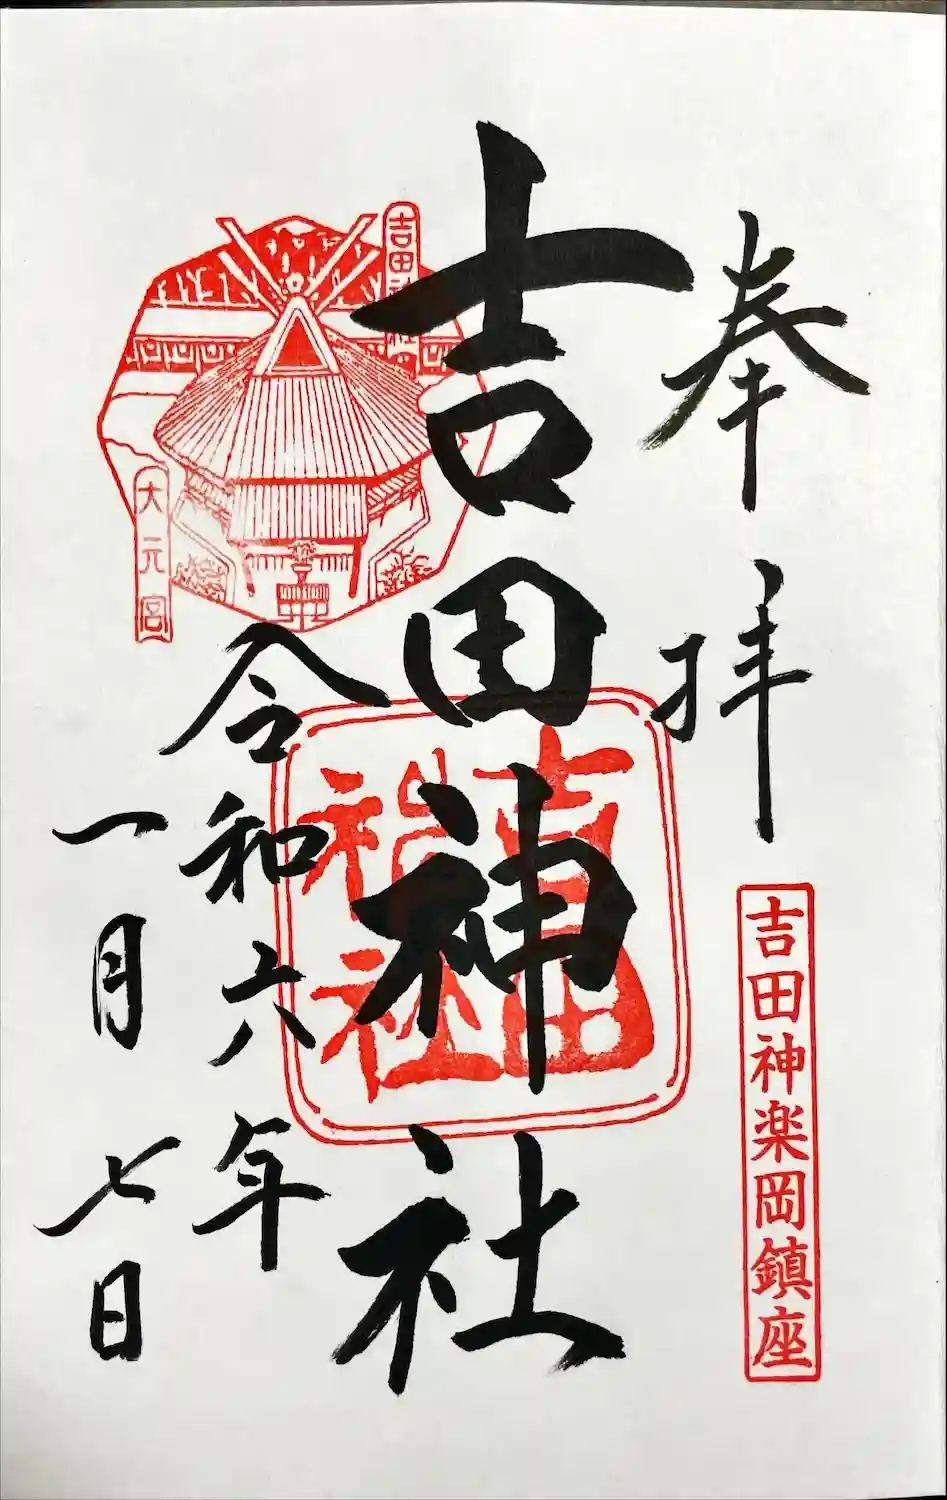 奉拝
吉田神楽岡鎮座
吉田神社
吉田神社
吉田神社
大元宮
令和六年
一月七日